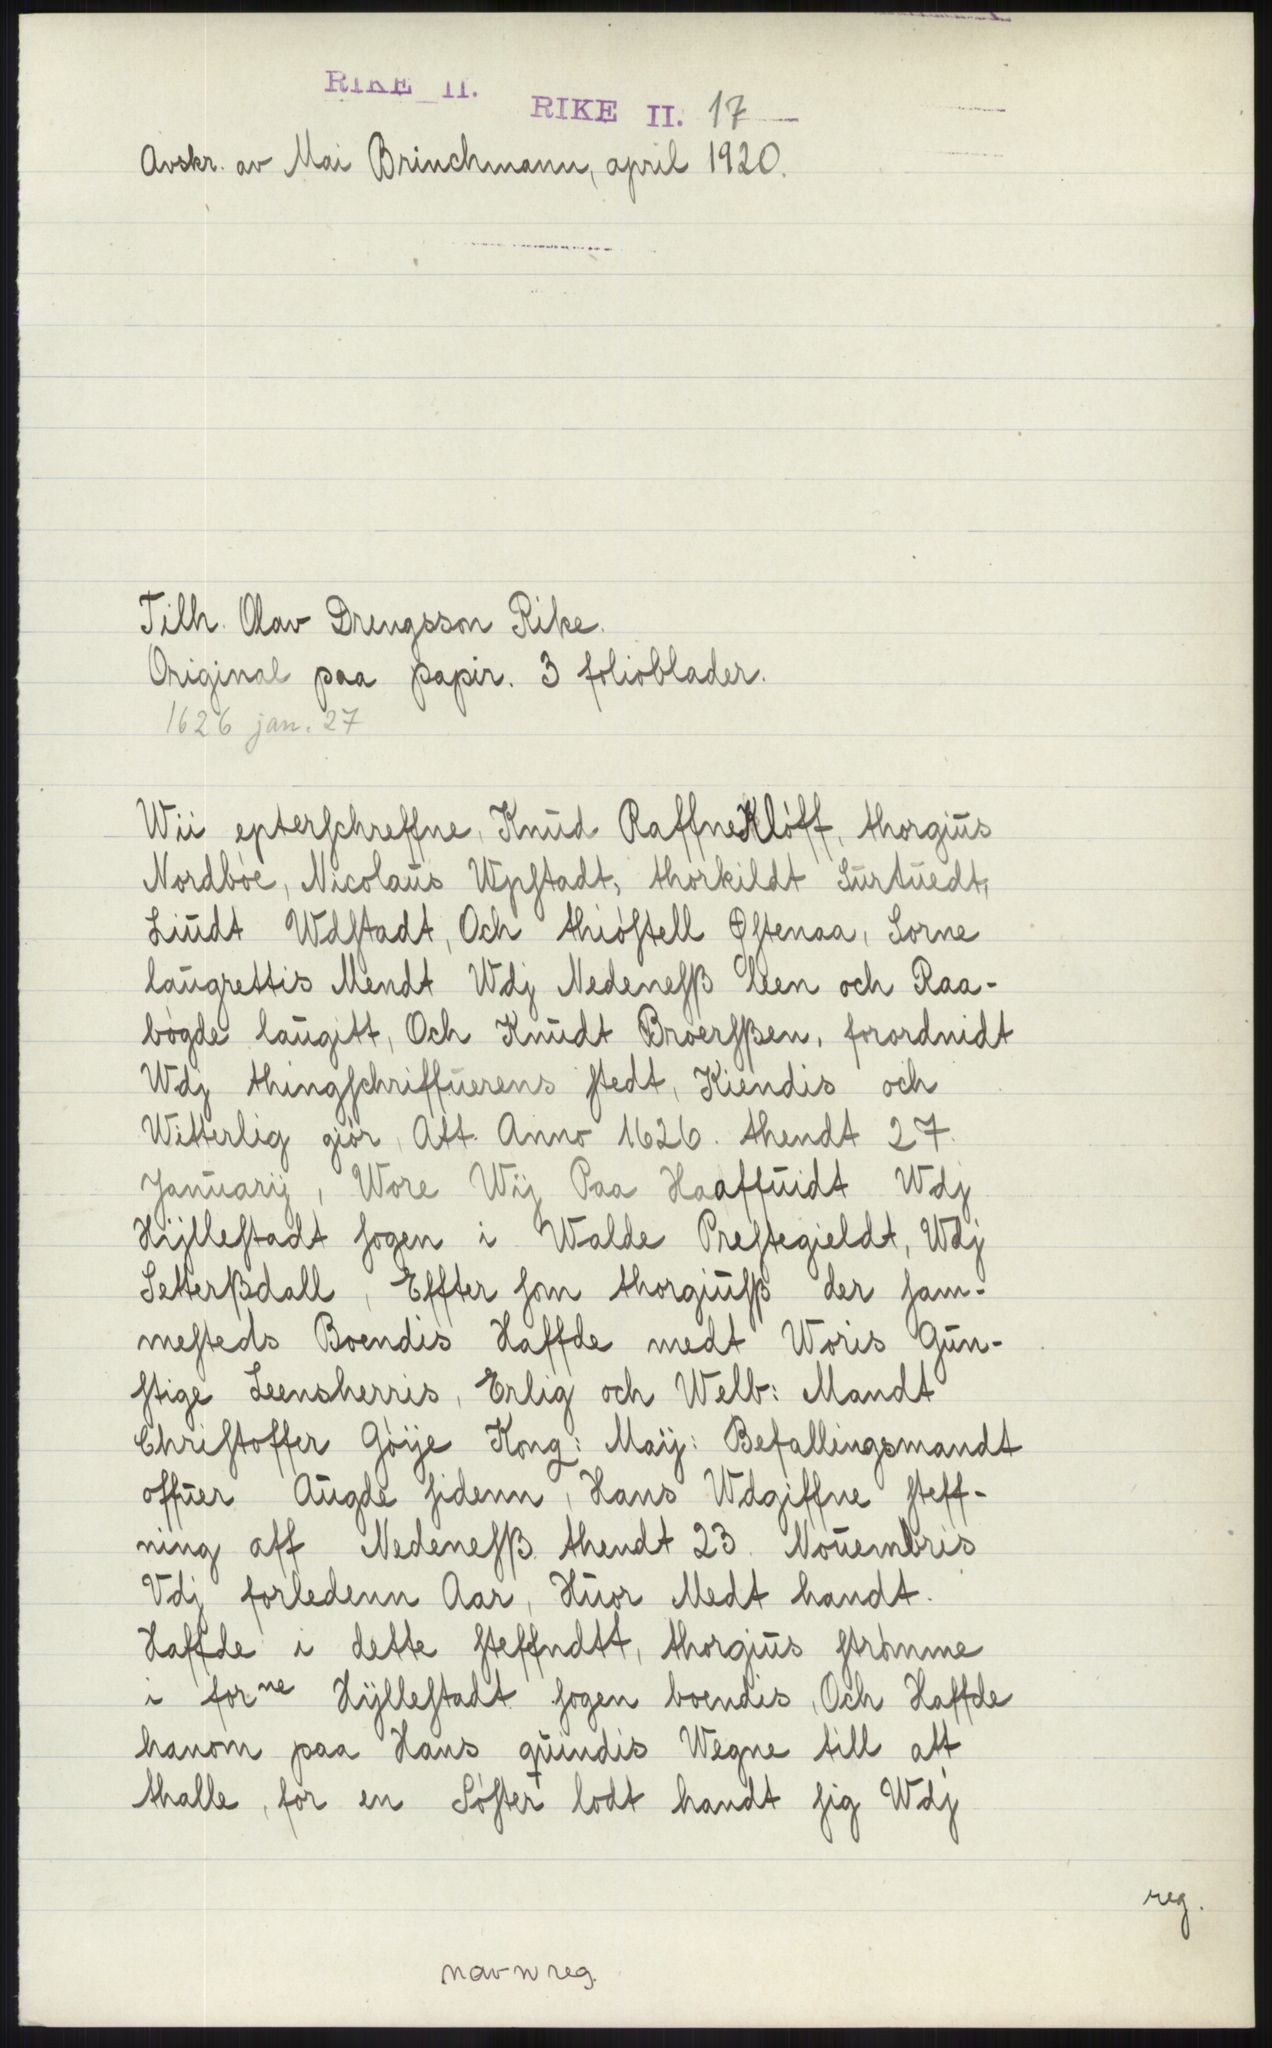 RIKE II.
RIKE II. 17
Avskr. av Mai Brinchmann, april 1920.
Tilh. Olav Drengsson Rike.
Original paa papir. 3 folioblader.
1626 jan. 27
Wii epterſchreffne, Knud RaffneKlöff, thorgiús
Nordböe, Nicolaús Wpſtadt, thorkildt Súrtúedt,
Liúdt Wdſtadt, Och thiöſtell Øſtenaa, Sorne
laúgrettis Mendt Wdj Nedeneſß leen och Raa-
bögde laúgitt, Och Knúdt Broerſßen, forordnidt
Wdj thingſchriffúerens ſtedt, Kiendis och
Witterlig giör, Att Anno 1626. thendt 27.
Janúarij, Wore Wij Paa Haaffúidt Wdj
Hÿlleſtadt ſogen i Walde Preſtegieldt, Wdj
Setterßdall, Effter ſom thorgiúſß der ſam-
meſteds Boendis Haffde medt Woris Gún-
ſtige Leensherris, Erlig och Welb: Mandt
Chriſtoffer Göÿe Kong: Maÿ: Befallingsmandt
offúer Aúgde ſidenn, Hans Wdgiffne ſteff-
ning aff Nedeneſß thendt 23. Noúembris
Vdj forledenn Aar, Húor Medt handt
Haffde i dette ſteffndtt, thorgiús ſtrömme
i forne Hÿlleſtadt ſogen boendis, Och Haffde
hanom paa Hans qúindis Wegne till att
thalle, for en Söſter lodt handt ſig Wdj
reg.
navnreg.